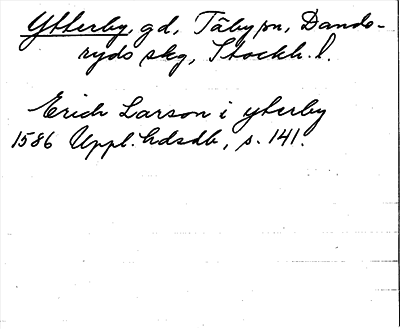 Ytterby, gd, Täby sn, Dande-
ryds skg, Stockh. l.
Erich Larson i ytterby
1586 Uppl. hdsdb, s. 141.